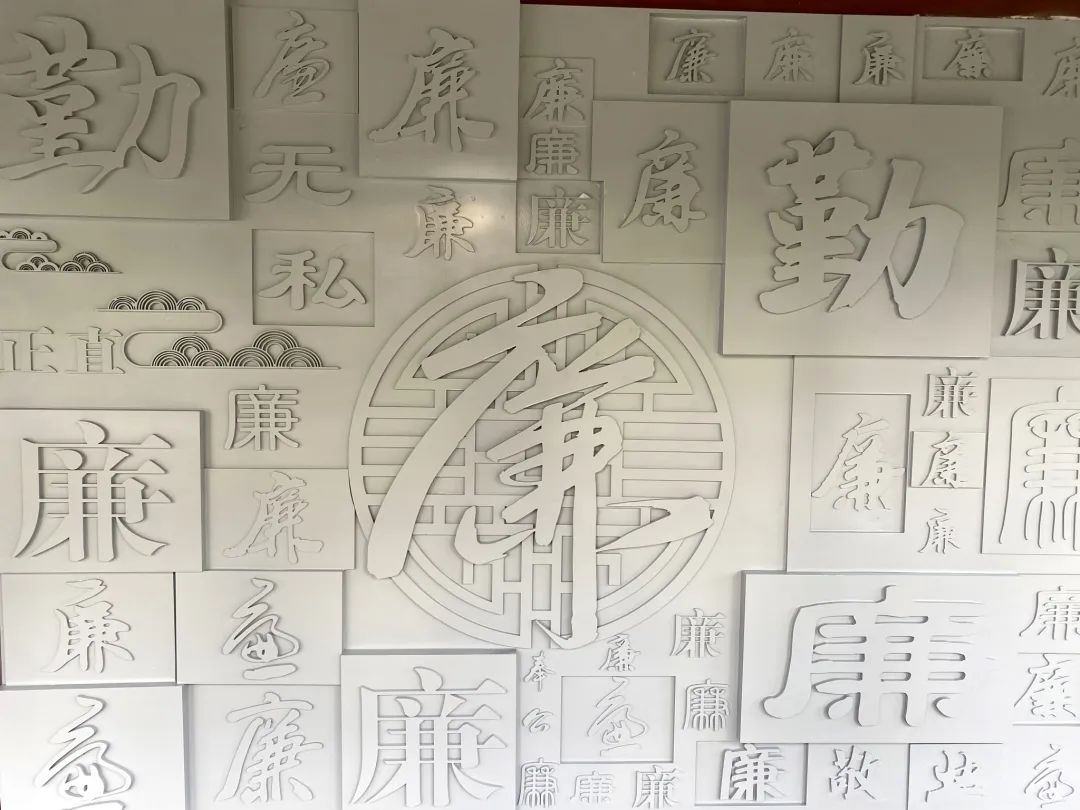 勤
廉
廉
廉
廉
廉
廉
廉
无
廉
廉
廉
廉
私
勤
廉
廉
正直
廉
廉
廉
廉
廉
廉
廉
廉
廉
廉
廉
廉
廉
奉
公
廉
廉
廉
廉
廉
廉
廉
廉
廉
廉
敬
廉